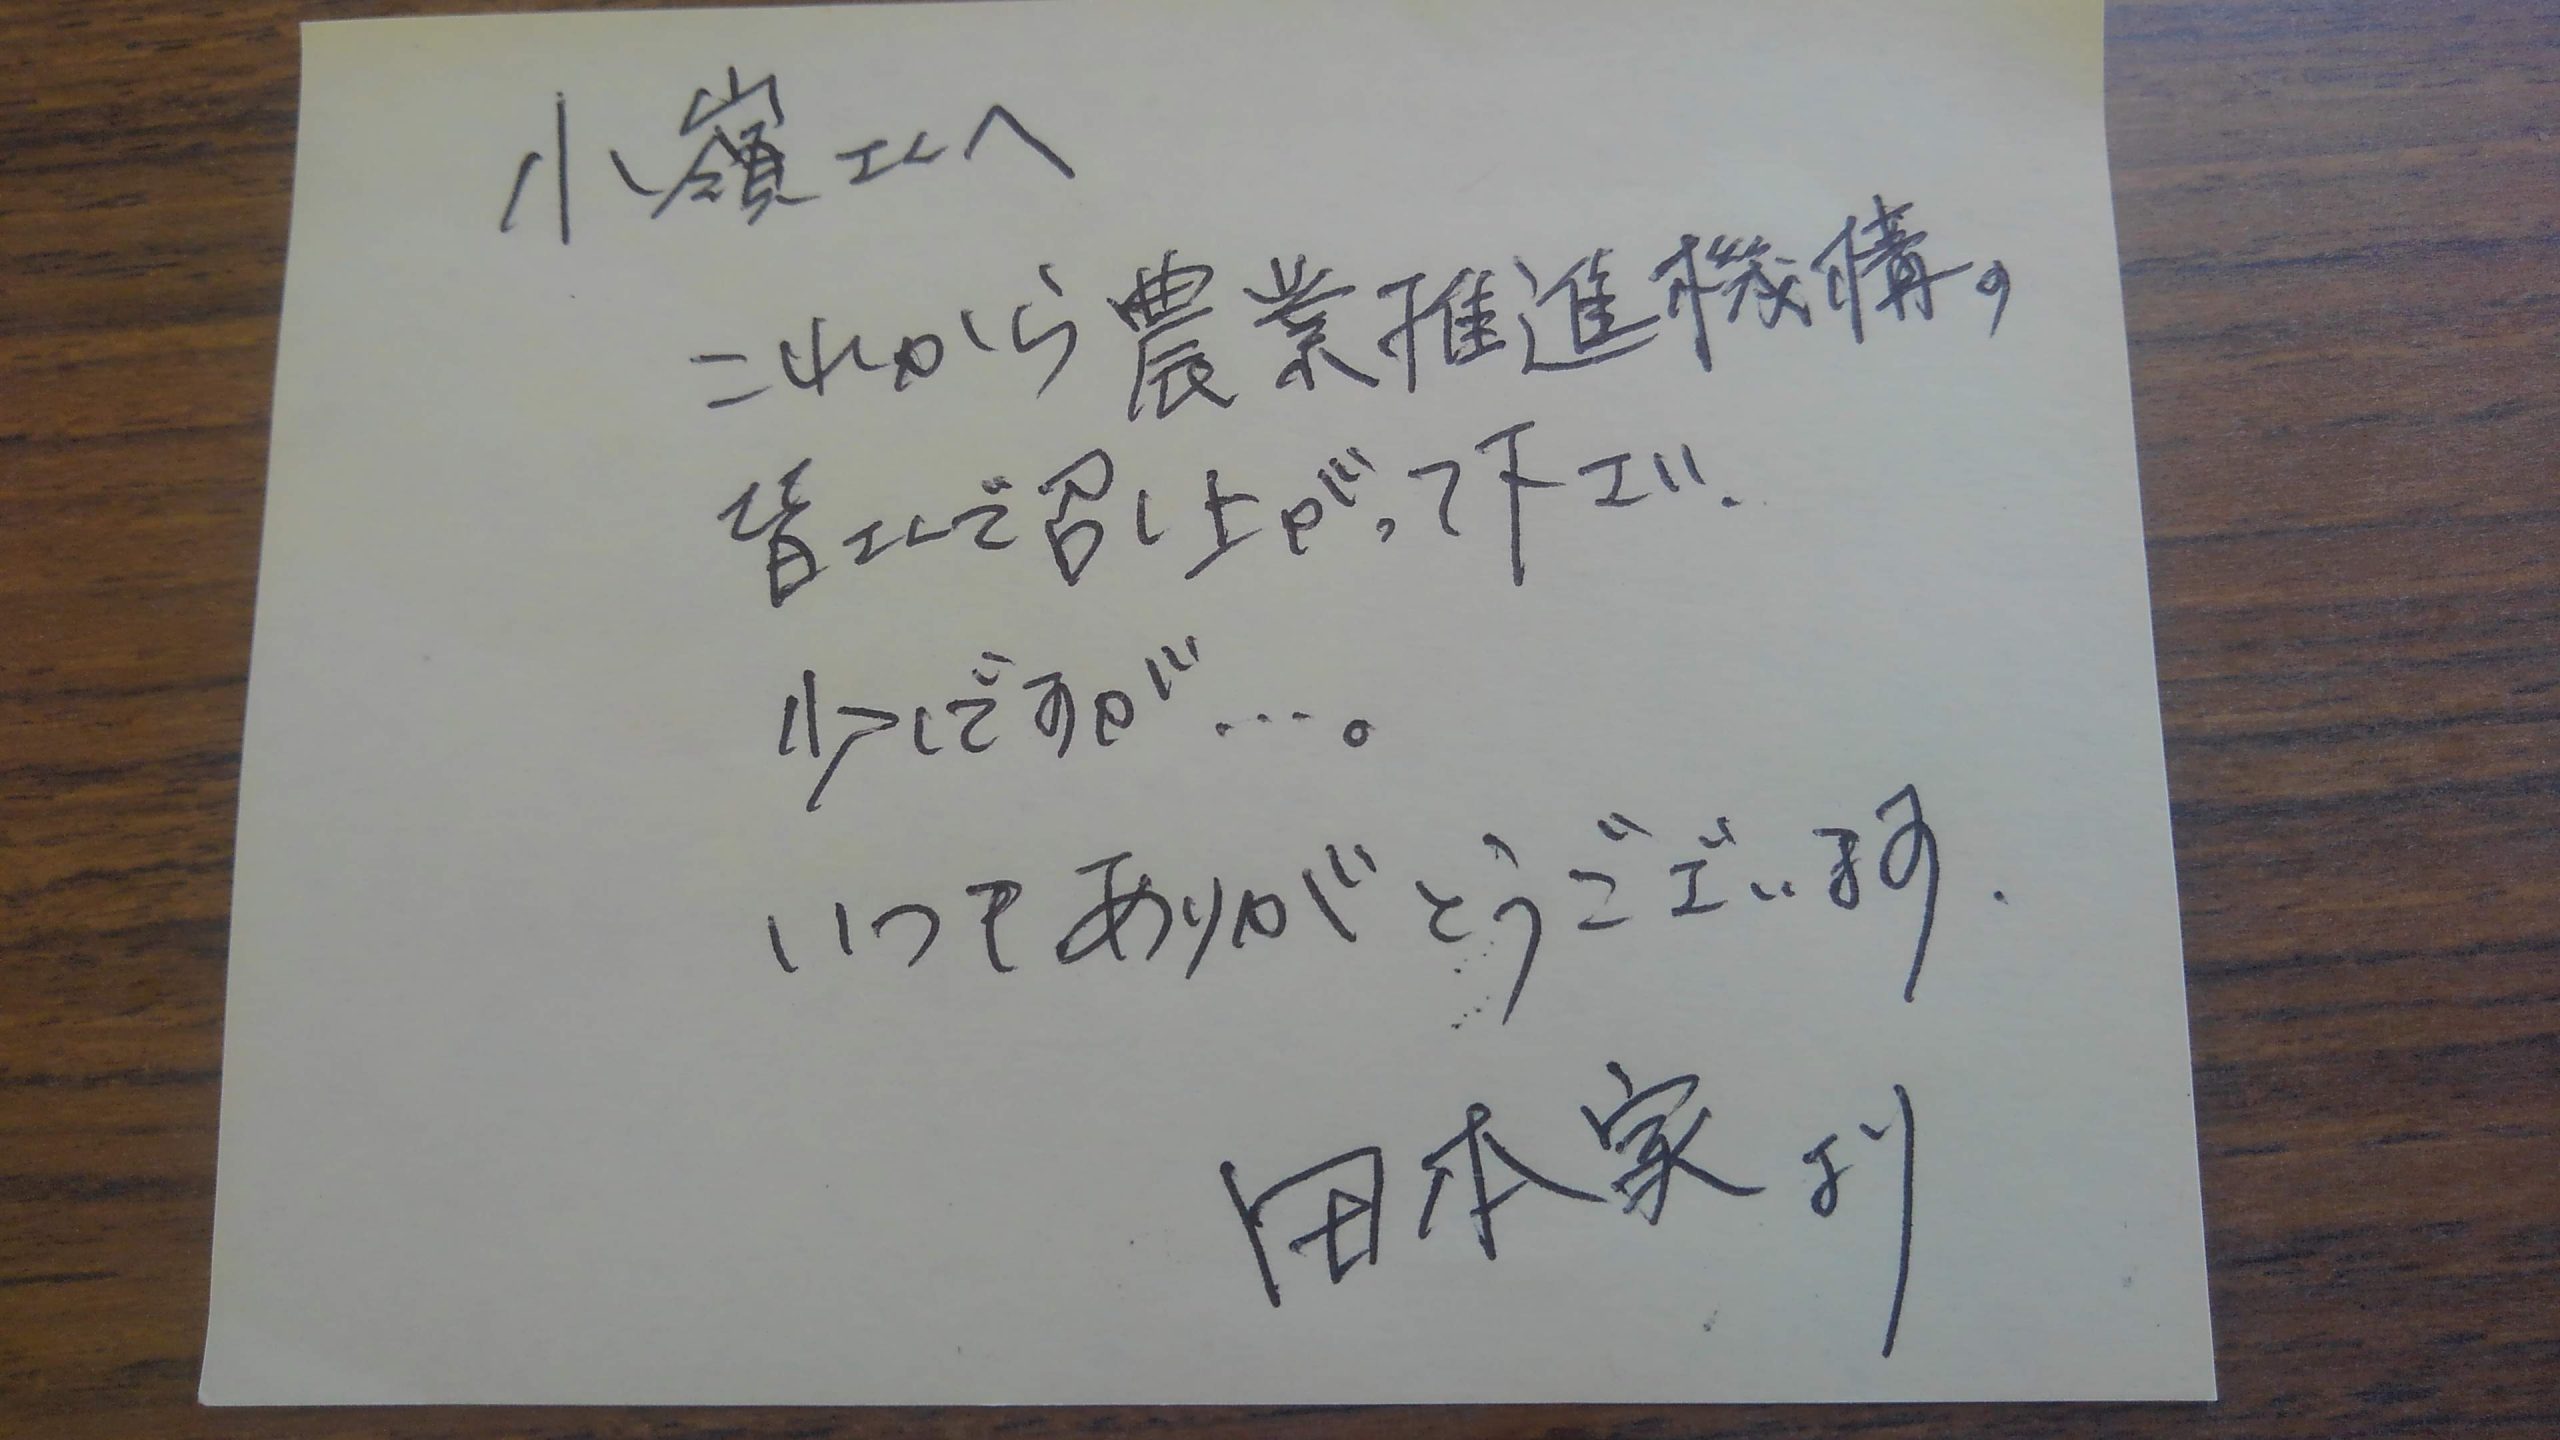 小嶺さんへ
これから農業推進機構の
皆さんで召し上がって下さい.
少しですが…。
いつもありがとうございます.
田本家より